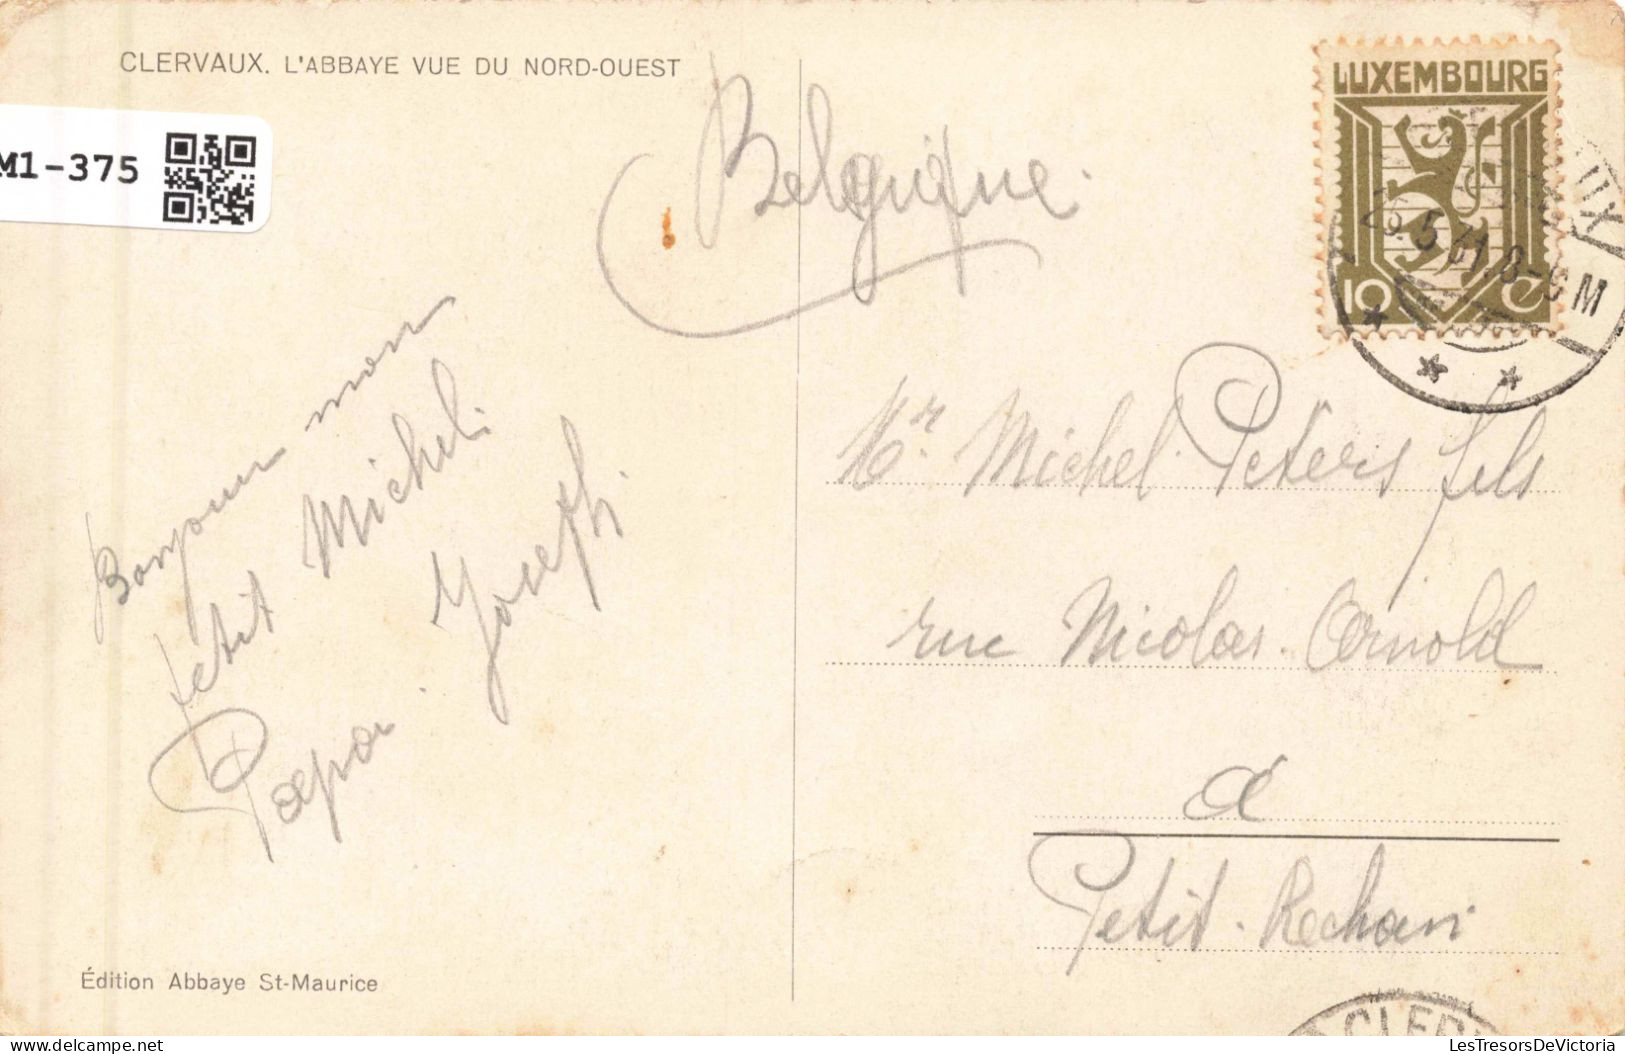 CLERVAUX. L'ABBAYE VUE DU NORD-OUEST
M1-375
Belgique.
LUXEMBOURG
10 C
29.5.31.8-9M
Bonjour mon
petit Michel.
Papa. Joseph.
Mr. Michel Peters fils
rue Nicolas Arnold
à
Petit-Rechain
Édition Abbaye St-Maurice
LesTresorsDeVictoria.com